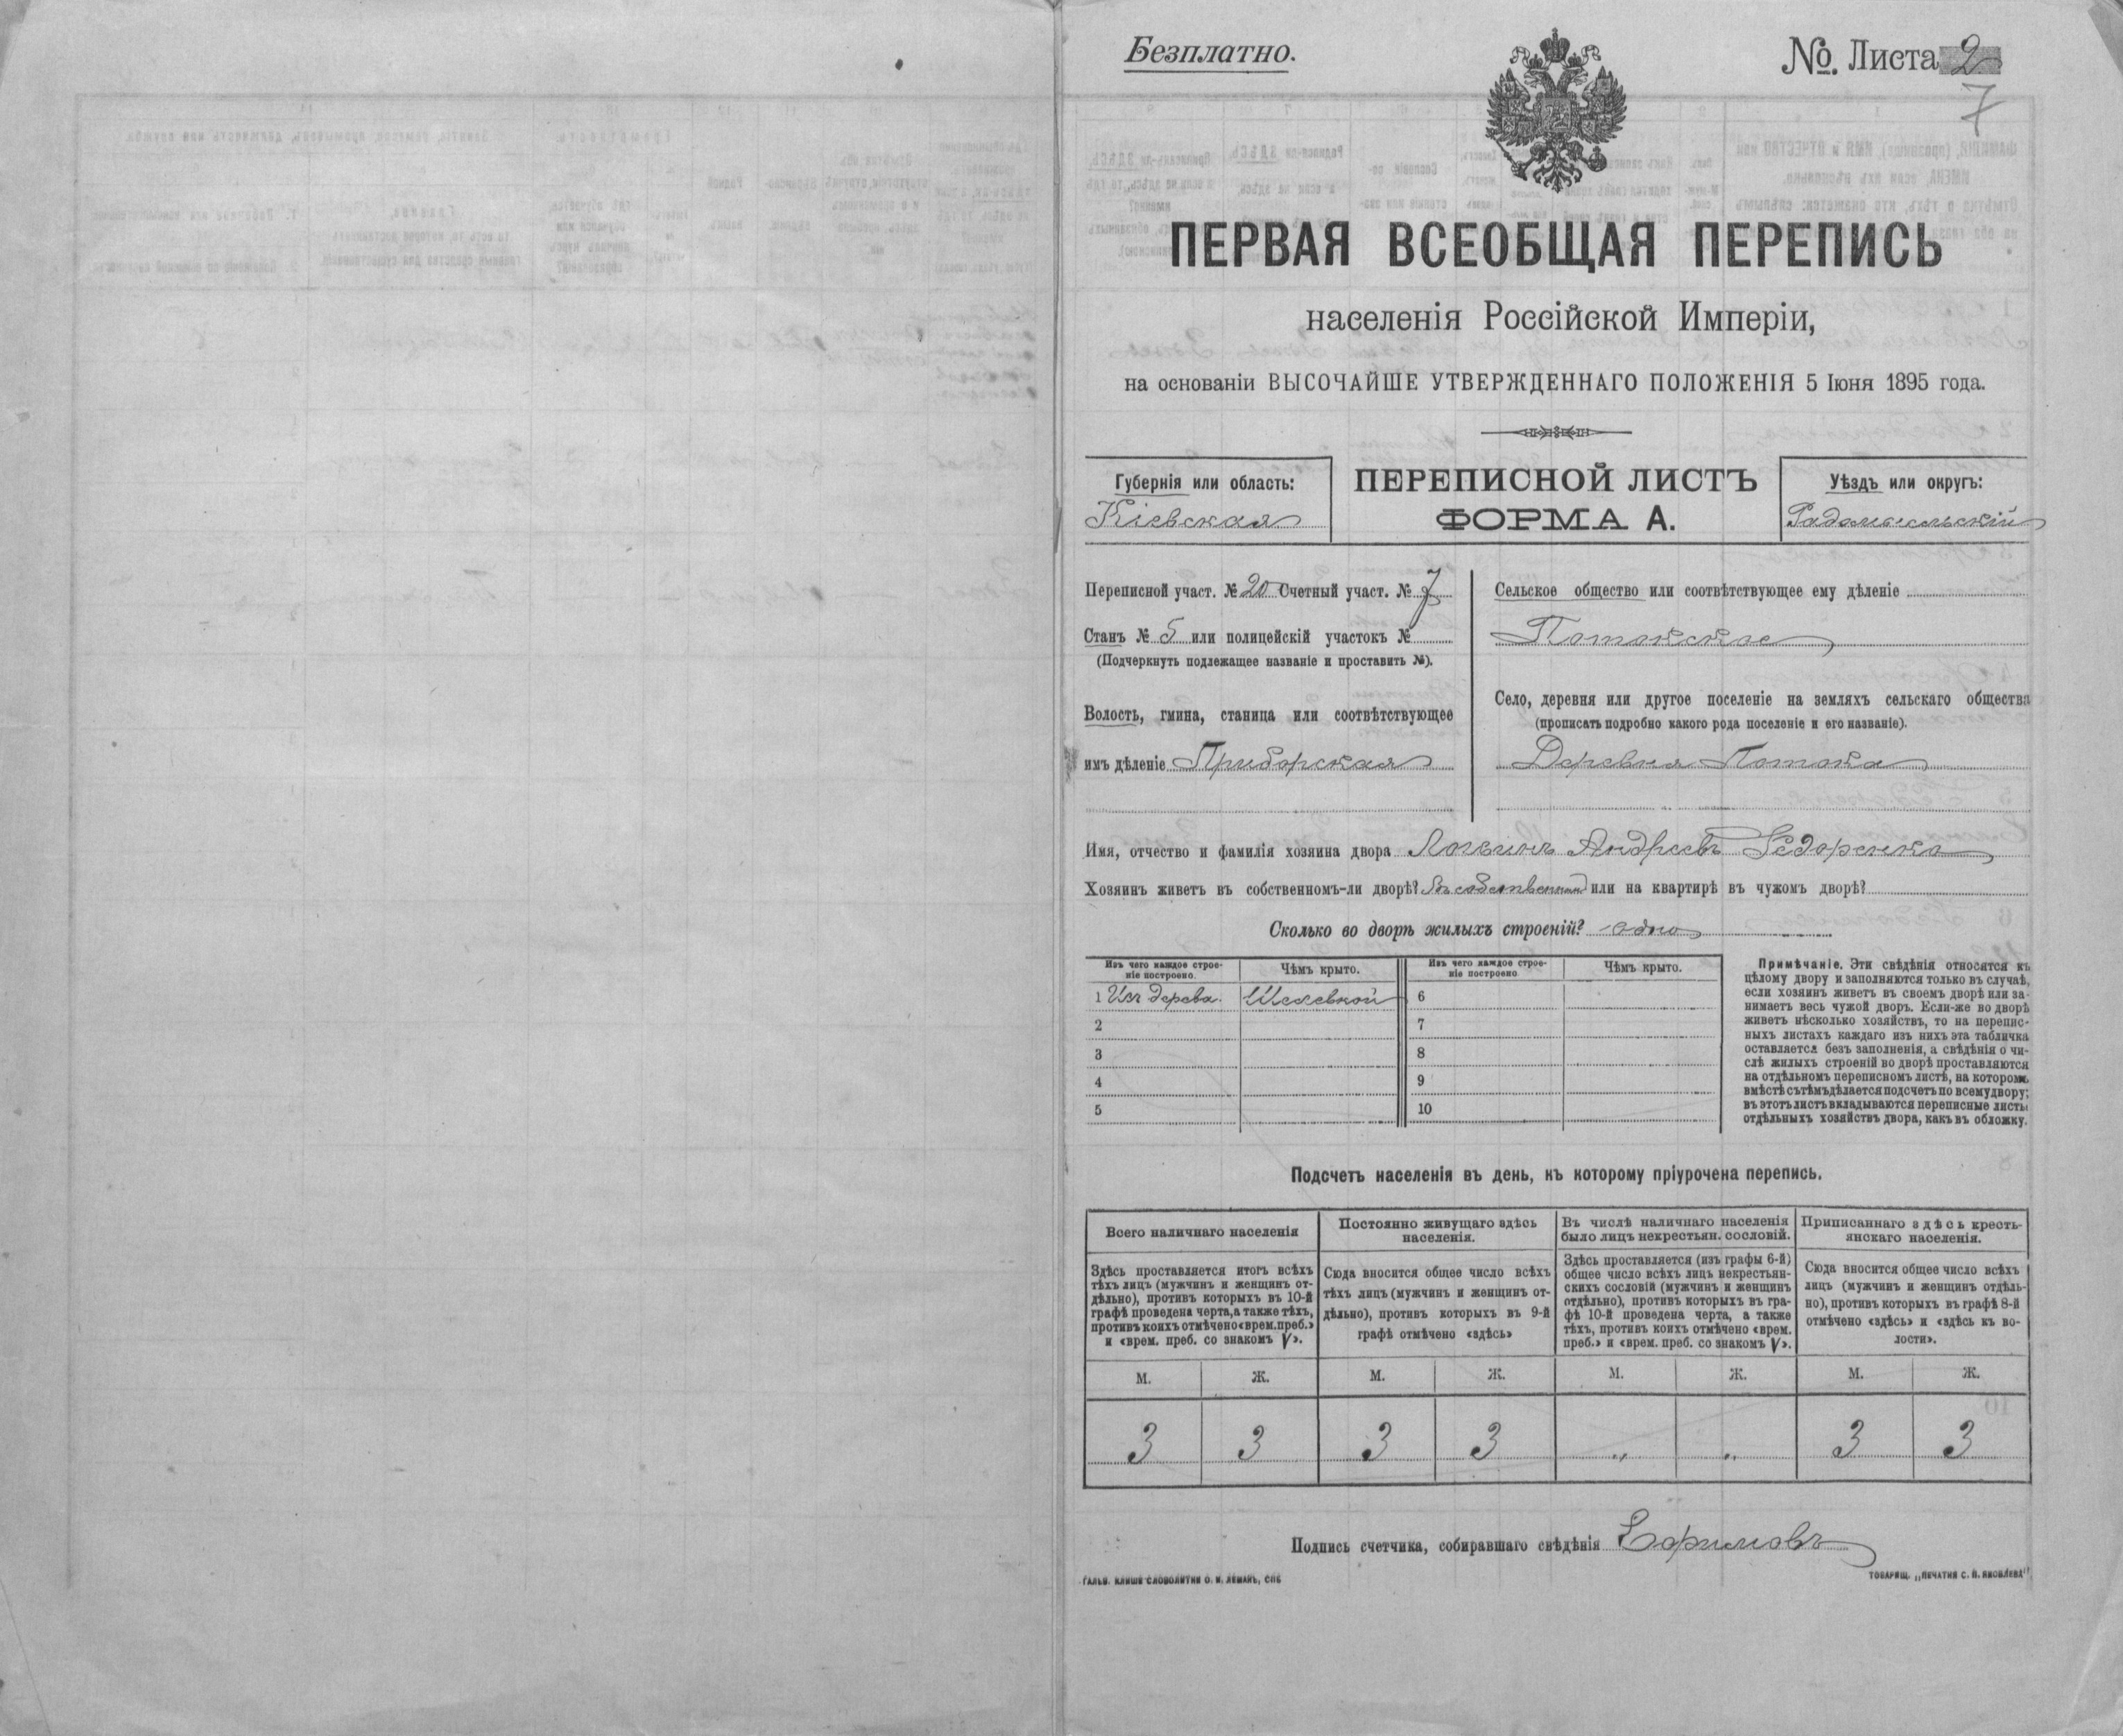 Безплатно.
№. Листа 2
7
ПЕРВАЯ ВСЕОБЩАЯ ПЕРЕПИСЬ
населенія Россійской Имперіи,
на основаніи ВЫСОЧАЙШЕ УТВЕРЖДЕННАГО ПОЛОЖЕНІЯ 5 Іюня 1895 года.
Губернія или область:
Кіевская
ПЕРЕПИСНОЙ ЛИСТЪ
ФОРМА А.
Уѣздъ или округъ:
Радомысльскій
Переписной участ. № 20 Счетный участ. № 7
Станъ № 5 или полицейскій участокъ №
(Подчеркнуть подлежащее названіе и проставить №).
Волость, гмина, станица или соотвѣтствующее
имъ дѣленіе Приборская
Сельское общество или соотвѣтствующее ему дѣленіе
Потокское
Село, деревня или другое поселеніе на земляхъ сельскаго общества
(прописать подробно какого рода поселеніе и его названіе).
Деревня Потока
Имя, отчество и фамилія хозяина двора Логвинъ Андреевъ Федоренко
Хозяинъ живетъ въ собственномъ-ли дворѣ? Въ собственномъ или на квартирѣ въ чужомъ дворѣ?
Сколько во дворѣ жилыхъ строеній? одно
Изъ чего каждое строе-
ніе построено.
Чѣмъ крыто.
Изъ чего каждое строе-
ніе построено
Чѣмъ крыто.
1 Изъ дерева. Шелевкой 6
2 7
3 8
4 9
5 10
Примѣчаніе. Эти свѣдѣнія относятся къ
цѣлому двору и заполняются только въ случаѣ,
если хозяинъ живетъ въ своемъ дворѣ или за-
нимаетъ весь чужой дворъ. Если-же во дворѣ
живетъ нѣсколько хозяйствъ, то на перепис-
ныхъ листахъ каждаго изъ нихъ эта табличка
оставляется безъ заполненія, а свѣдѣнія о чи-
слѣ жилыхъ строеній во дворѣ проставляются
на отдѣльномъ переписномъ листѣ, на которомъ
вмѣстѣ съ тѣмъ дѣлается подсчетъ по всему двору;
въ этотъ листъ вкладываются переписные листы
отдѣльныхъ хозяйствъ двора, какъ въ обложку.
Подсчетъ населенія въ день, къ которому пріурочена перепись.
Всего наличнаго населенія
Здѣсь проставляется итогъ всѣхъ
тѣхъ лицъ (мужчинъ и женщинъ от-
дѣльно), противъ которыхъ въ 10-й
графѣ проведена черта, а также тѣхъ,
противъ коихъ отмѣчено «врем. преб.»
и «врем. преб. со знакомъ V».
Постоянно живущаго здѣсь
населенія.
Сюда вносится общее число всѣхъ
тѣхъ лицъ (мужчинъ и женщинъ от-
дѣльно), противъ которыхъ въ 9-й
графѣ отмѣчено «здѣсь»
Въ числѣ наличнаго населенія
было лицъ некрестьян. сословій.
Здѣсь проставляется (изъ графы 6-й)
общее число всѣхъ лицъ некрестьян-
скихъ сословій (мужчинъ и женщинъ
отдѣльно), противъ которыхъ въ гра-
фѣ 10-й проведена черта, а также
тѣхъ, противъ коихъ отмѣчено «врем.
преб.» и «врем. преб. со знакомъ V».
Приписаннаго здѣсь кресть-
янскаго населенія.
Сюда вносится общее число всѣхъ
лицъ (мужчинъ и женщинъ отдѣль-
но), противъ которыхъ въ графѣ 8-й
отмѣчено «здѣсь» и «здѣсь къ во-
лости».
М. Ж. М. Ж. М. Ж. М. Ж.
3 3 3 3 „ „ 3 3
Подпись счетчика, собиравшаго свѣдѣнія Ефимовъ
ГАЛЬВ. КЛИШЕ СЛОВОЛИТНИ О. И. ЛЕМАНЪ, СПБ
ТОВАРИЩ. „ПЕЧАТНЯ С. П. ЯКОВЛЕВА"